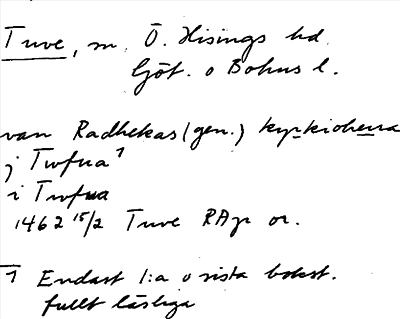 Tuve, sn. Ö. Hisings hd.
Göt. o Bohus l.
van Radhekas (gen.) kyrkioherra
j Twfua ⁊
i Twfua
1462 15/2 Tuve RAp or.
⁊ Endast 1:a o sista bokst.
fullt läsliga